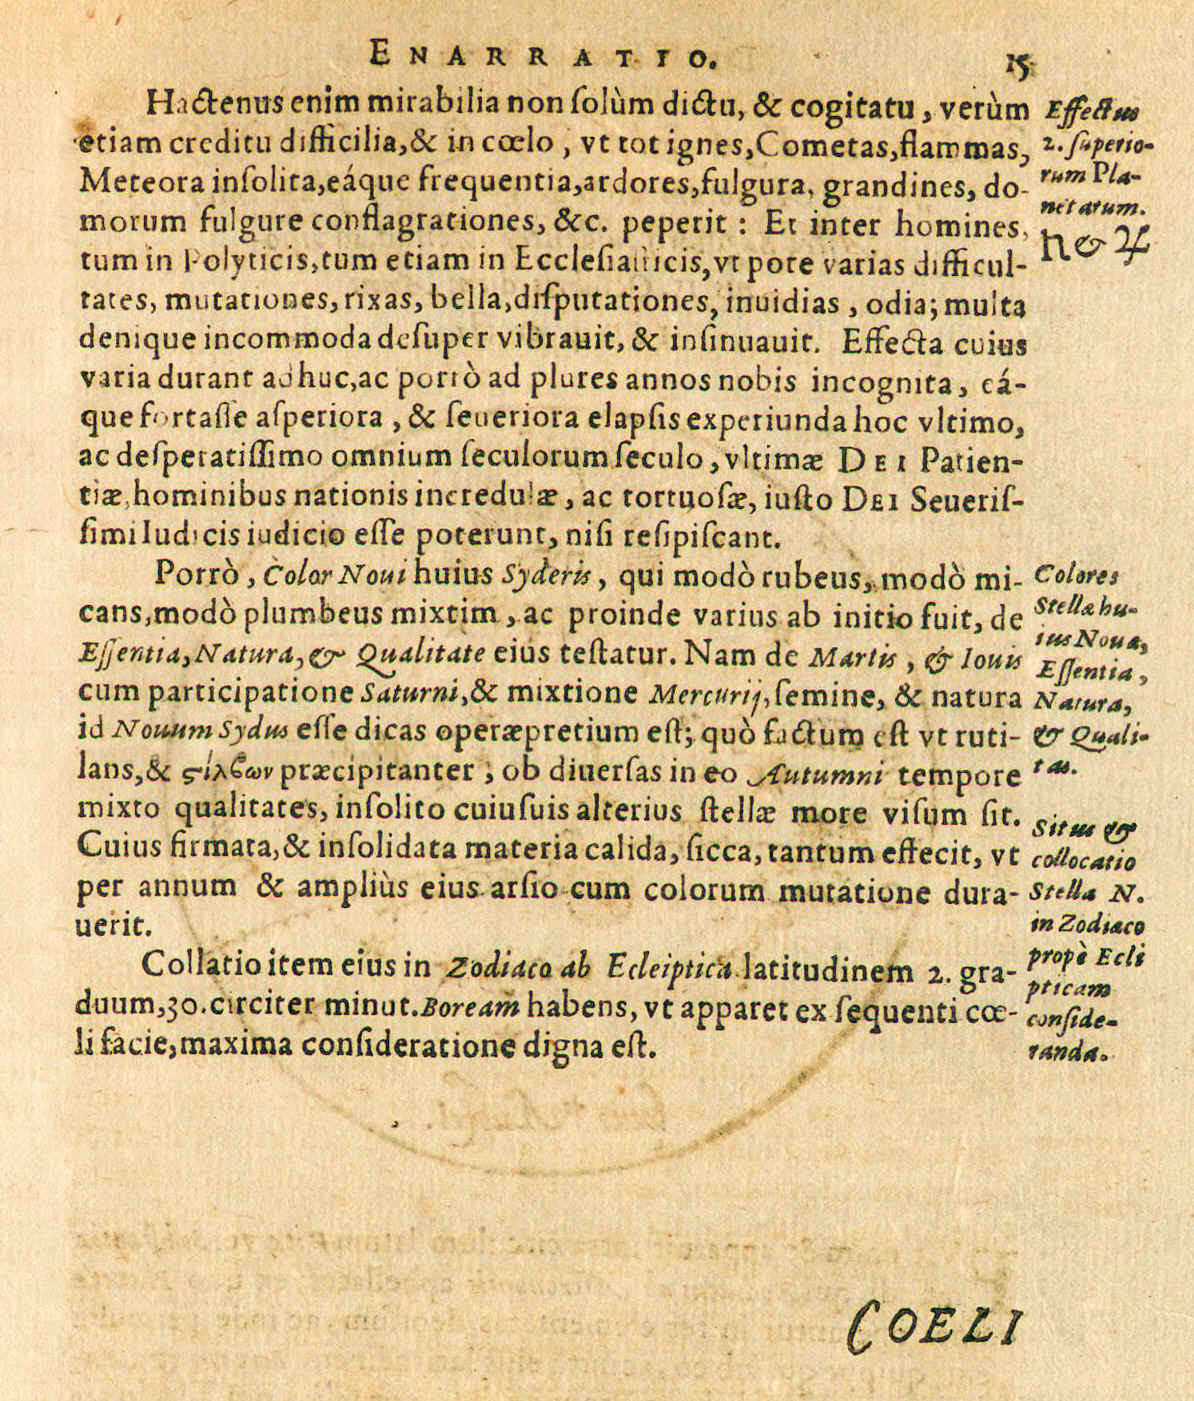 ENARRATIO.
15
Hactenus enim mirabilia non ſolùm dictu, & cogitatu, verùm
etiam creditu difficilia,& in cœlo, vt tot ignes,Cometas,flammas,
Meteora inſolita,eáque frequentia,ardores,fulgura, grandines, do-
morum fulgure conflagrationes, &c. peperit: Et inter homines,
tum in Polyticis,tum etiam in Eccleſiaſticis,vt pote varias difficul-
tates, mutationes,rixas, bella,diſputationes, inuidias, odia; multa
denique incommoda deſuper vibrauit, & inſinuauit. Effecta cuius
varia durant adhuc,ac porrò ad plures annos nobis incognita, eá-
que fortaſſe aſperiora, & ſeueriora elapſis experiunda hoc vltimo,
ac deſperatiſſimo omnium ſeculorum ſeculo, vltimæ DEI Patien-
tiæ,hominibus nationis incredulæ, ac tortuoſæ, iuſto DEI Seueriſ-
ſimi Iudicis iudicio eſſe poterunt, niſi reſipiſcant.
Porrò, Color Noui huius Syderis, qui modò rubeus, modò mi-
cans,modò plumbeus mixtim, ac proinde varius ab initio fuit, de
Eſſentia,Natura,& Qualitate eius teſtatur. Nam de Martis, & Iouis
cum participatione Saturni,& mixtione Mercurij,ſemine, & natura
id Nouum Sydus eſſe dicas operæpretium eſt; quò factum eſt vt ruti-
lans,& ςίλβων præcipitanter, ob diuerſas in eo Autumni tempore
mixto qualitates, inſolito cuiuſuis alterius ſtellæ more viſum ſit.
Cuius firmata,& inſolidata materia calida, ſicca, tantum effecit, vt
per annum & ampliùs eius arſio cum colorum mutatione dura-
uerit.
Collatio item eius in Zodiaco ab Ecleiptica latitudinem 2. gra-
duum,30.circiter minut.Boream habens, vt apparet ex ſequenti cœ-
li facie,maxima conſideratione digna eſt.
Effectus
2. ſuperio-
rum Pla-
netarum.
♄ & ♃
Colores
Stellæ hu-
ius Nouæ,
Eſſentia,
Natura,
& Quali-
tas.
Situs &
collocatio
Stellæ N.
in Zodiaco
propè Ecli
pticam
conſide-
randa.
COELI